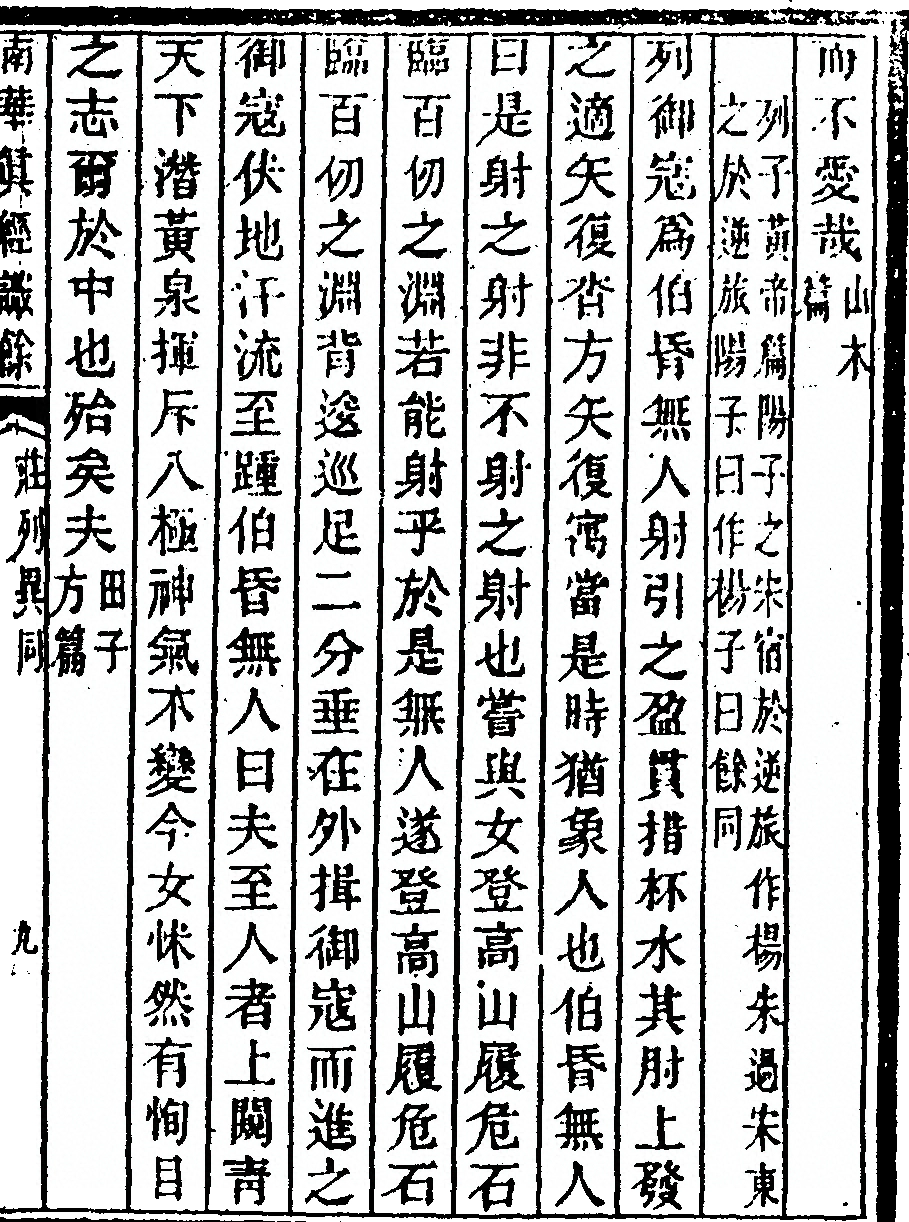 而不愛哉山木篇
列子黃帝篇陽子之宋宿於逆旅作楊朱過宋東
之於逆旅陽子曰作楊子曰餘同
列御寇爲伯昏無人射引之盈貫措杯水其肘上發
之適矢復沓方矢復寓當是時猶象人也伯昏無人
曰是射之射非不射之射也嘗與女登高山履危石
臨百仞之淵若能射乎於是無人遂登高山履危石
臨百仞之淵背逡巡足二分垂在外揖御寇而進之
御寇伏地汗流至踵伯昏無人曰夫至人者上闚靑
天下潛黃泉揮斥八極神氣不變今女怵然有恂目
之志爾於中也殆矣夫田子方篇
南華眞經識餘 莊列異同 九